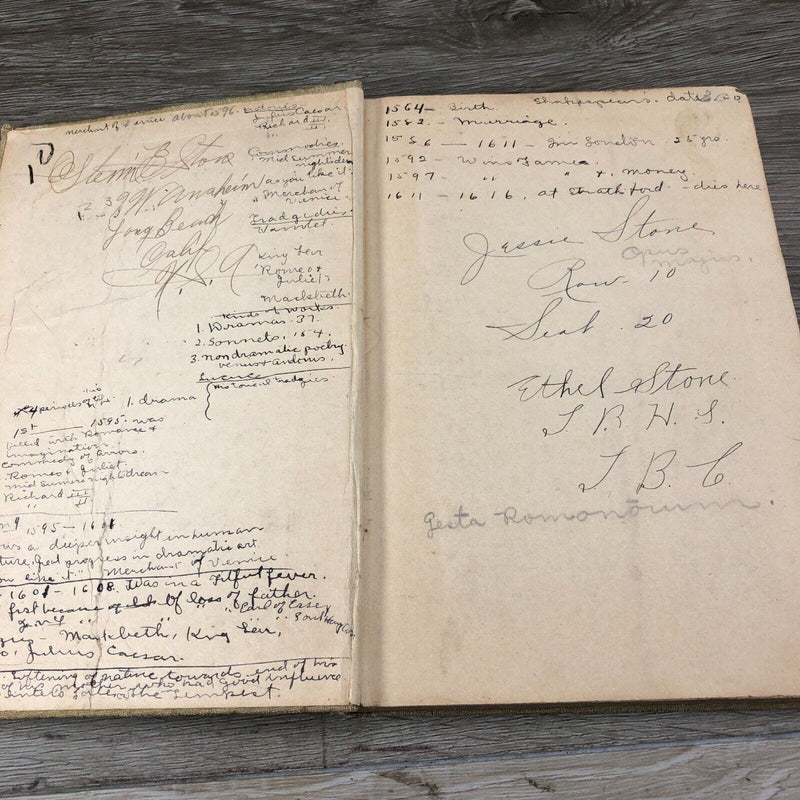 merchant of Venice about 1596.
Julius Caesar
Richard III
" II
D
B Stone
239 W. Anaheim
Long Beach
Calif
U. S. A
Commodies.
Mid Summer
night's
"as you like it"
"Merchant of
Venice"
Tradgedies
Hamlet
King Lear
Romeo &
Juliet
Mackbeth.
Kinds of Works.
1. Dramas. 37.
2. Sonnets. 154.
3. nondramatic poetry.
venus & adonis.
Lucrece
Historical tradgies
4 periods of his life. 1. drama
1st 1595. was
filled with Romance &
imagination.
Commedy of errors.
Romeo & Juliet.
mid Sumer night dream
Richard III
" II
1595 - 1601
a deeper insight in human
great progress in dramatic art.
like it" Merchant of Venice.
1601 - 1608. Was in a fitful fever.
first because of loss of father.
" " " " Earl of Essex
Mackbeth, King Lear,
Julius Caesar.
Softening of nature towards end of his
who had good influence
the Tempest.
1564 - Birth Shakespear's. dates
1582 - Marriage.
1586 - 1611 - In London 25 yrs.
1592 - Wins Fame.
1597 " " & money.
1611 - 1616. at Strathford - dies here
Jessie Stone
Opus
Magius.
Row - 10
Seat . 20
Ethel Stone
L. B. H. S.
L B. C.
Gesta Romonōrum.